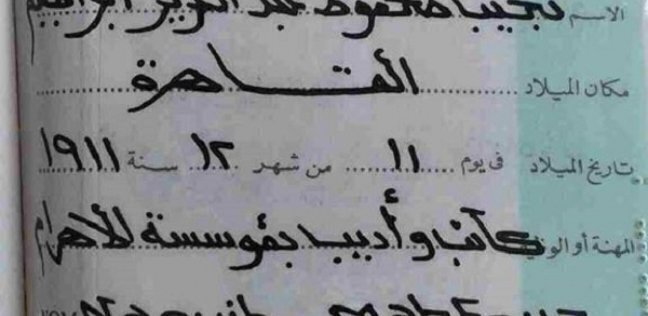 الاسم نجيب محفوظ عبد العزيز ابراهيم
مكان الميلاد القاهرة
تاريخ الميلاد فى يوم ١١ من شهر ١٢ سنة ١٩١١
المهنة أو الوظ كاتب وأديب بمؤسسة الأهرام